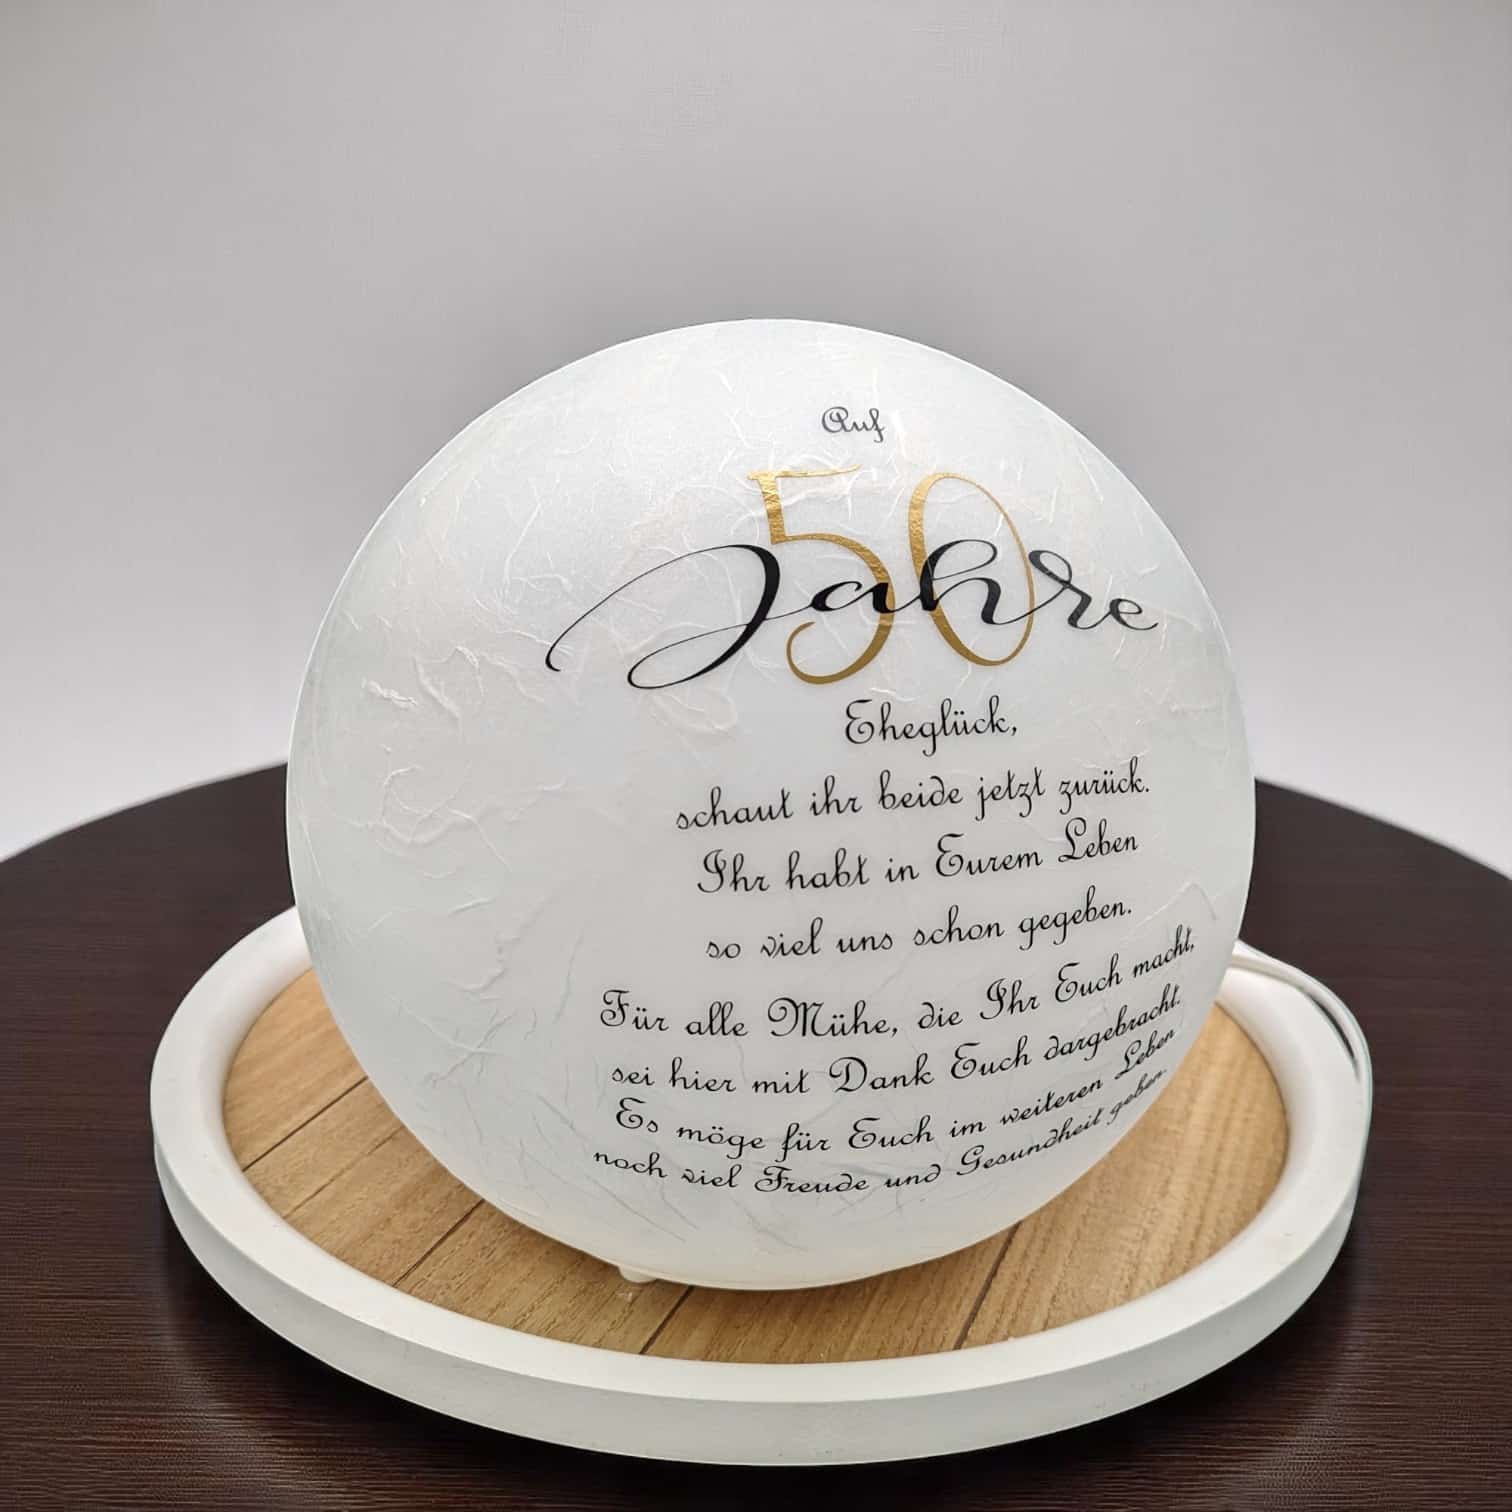 Auf
50
Jahre
Eheglück,
schaut ihr beide jetzt zurück.
Ihr habt in Eurem Leben
so viel uns schon gegeben.
Für alle Mühe, die Ihr Euch macht,
sei hier mit Dank Euch dargebracht.
Es möge für Euch im weiteren Leben
noch viel Freude und Gesundheit geben.